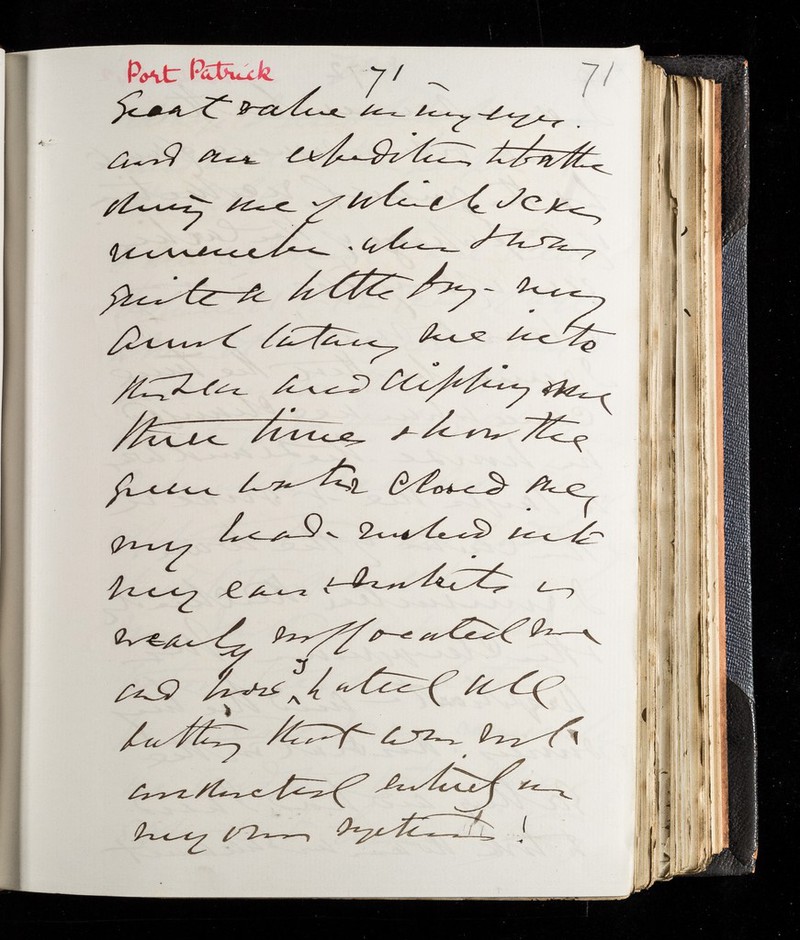 Port Patrick 71 71
Great value in my eyes.
and our expedition to bathe
during one of which I can
remember. when I was
quite a little boy - my
Aunt taking me into
the sea and dipping me
three times & how the
green water closed over
my head - rushed into
my ears & nostrils &
nearly suffocated me
and how I hated all
bathing that was not
conducted entirely on
my own system!